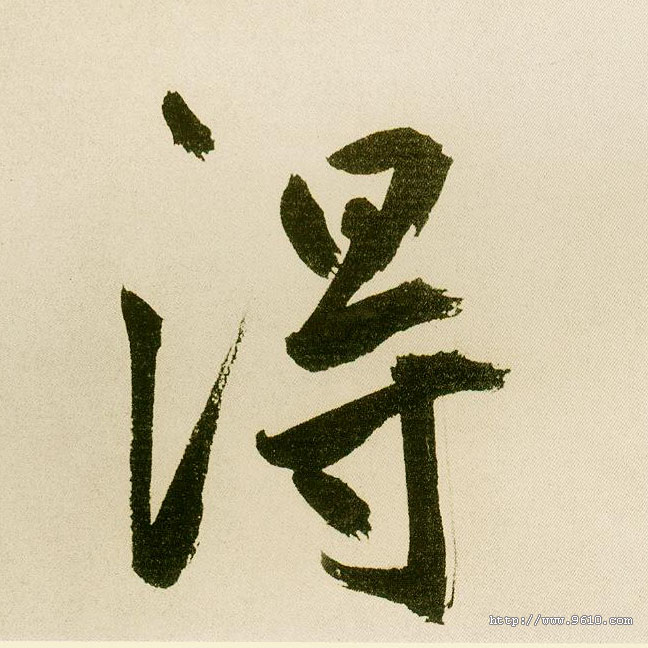 得
http://www.9610.com